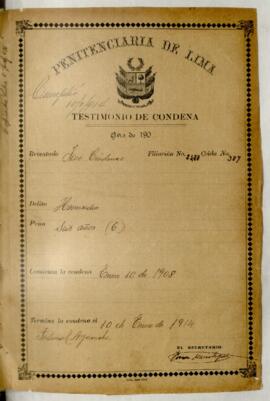 PENITENCIARIA DE LIMA
Cumplió
TESTIMONIO DE CONDENA
de 190
Rematado José Cárdenas Filiación No. Celda No. 307
Delito Homicidio
Pena Seis años (6)
Comienza la condena Enero 10 de 1908
Termina la condena el 10 de Enero de 1914
Tribunal Ayacucho
EL SECRETARIO